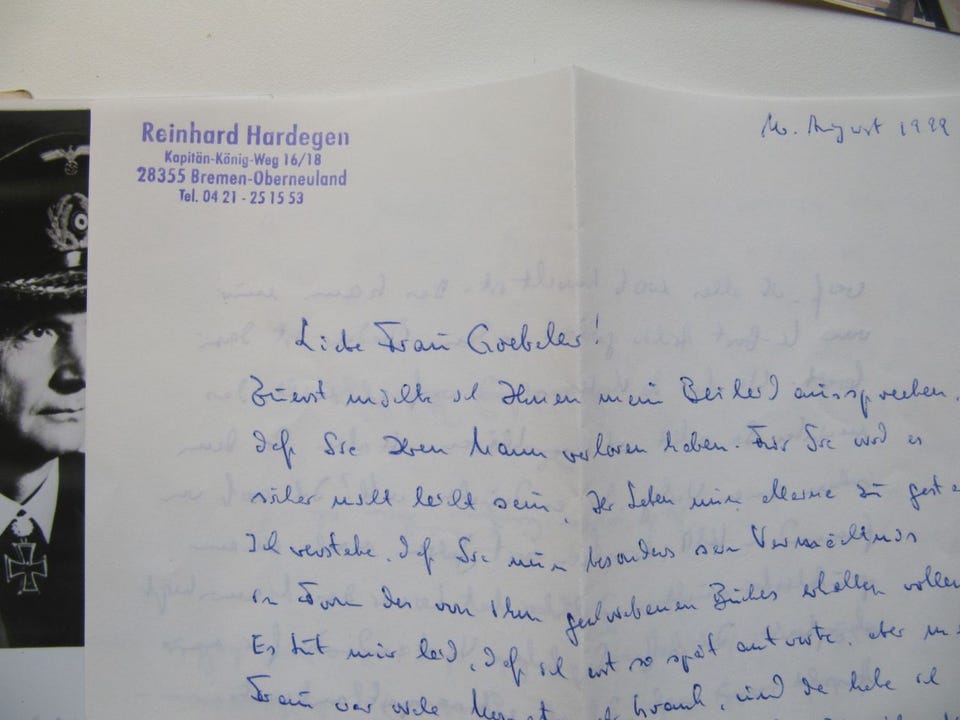 Reinhard Hardegen
Kapitän-König-Weg 16/18
28355 Bremen-Oberneuland
Tel. 04 21 - 25 15 53
August 1999
Liebe Frau Goebeler!
Zuerst möchte ich Ihnen mein Beileid aussprechen,
daß Sie Ihren Mann verloren haben. Für Sie wird es
sicher nicht leicht sein, Ihr Leben nun alleine zu
Ich verstehe, daß Sie nun besonders sein Vermächtnis
in Form des von ihm geschriebenen Buches erhalten wollen
Es tut mir leid, daß ich erst so spät antworte, aber
Frau war viele krank, und da habe ich